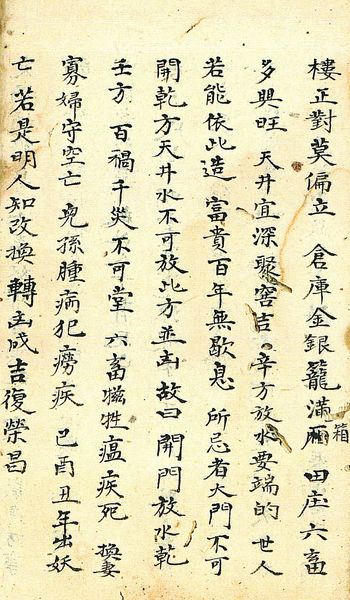 樓正對莫偏立　倉庫金銀籠滿廂　田庄六畜
箱
多興旺　天井宜深聚窖吉　辛方放水要端的　世人
若能依此造　富貴百年無歇息　所忌者大門不可
開乾方天井水不可放此方並凶故曰開門放水乾
壬方　百禍千災不可當　六畜犧牲瘟疾死　換妻
寡婦守空亡　兒孫腫病犯癆疾　己酉丑年出妖
亡　若是明人知改換　轉凶成吉復榮昌